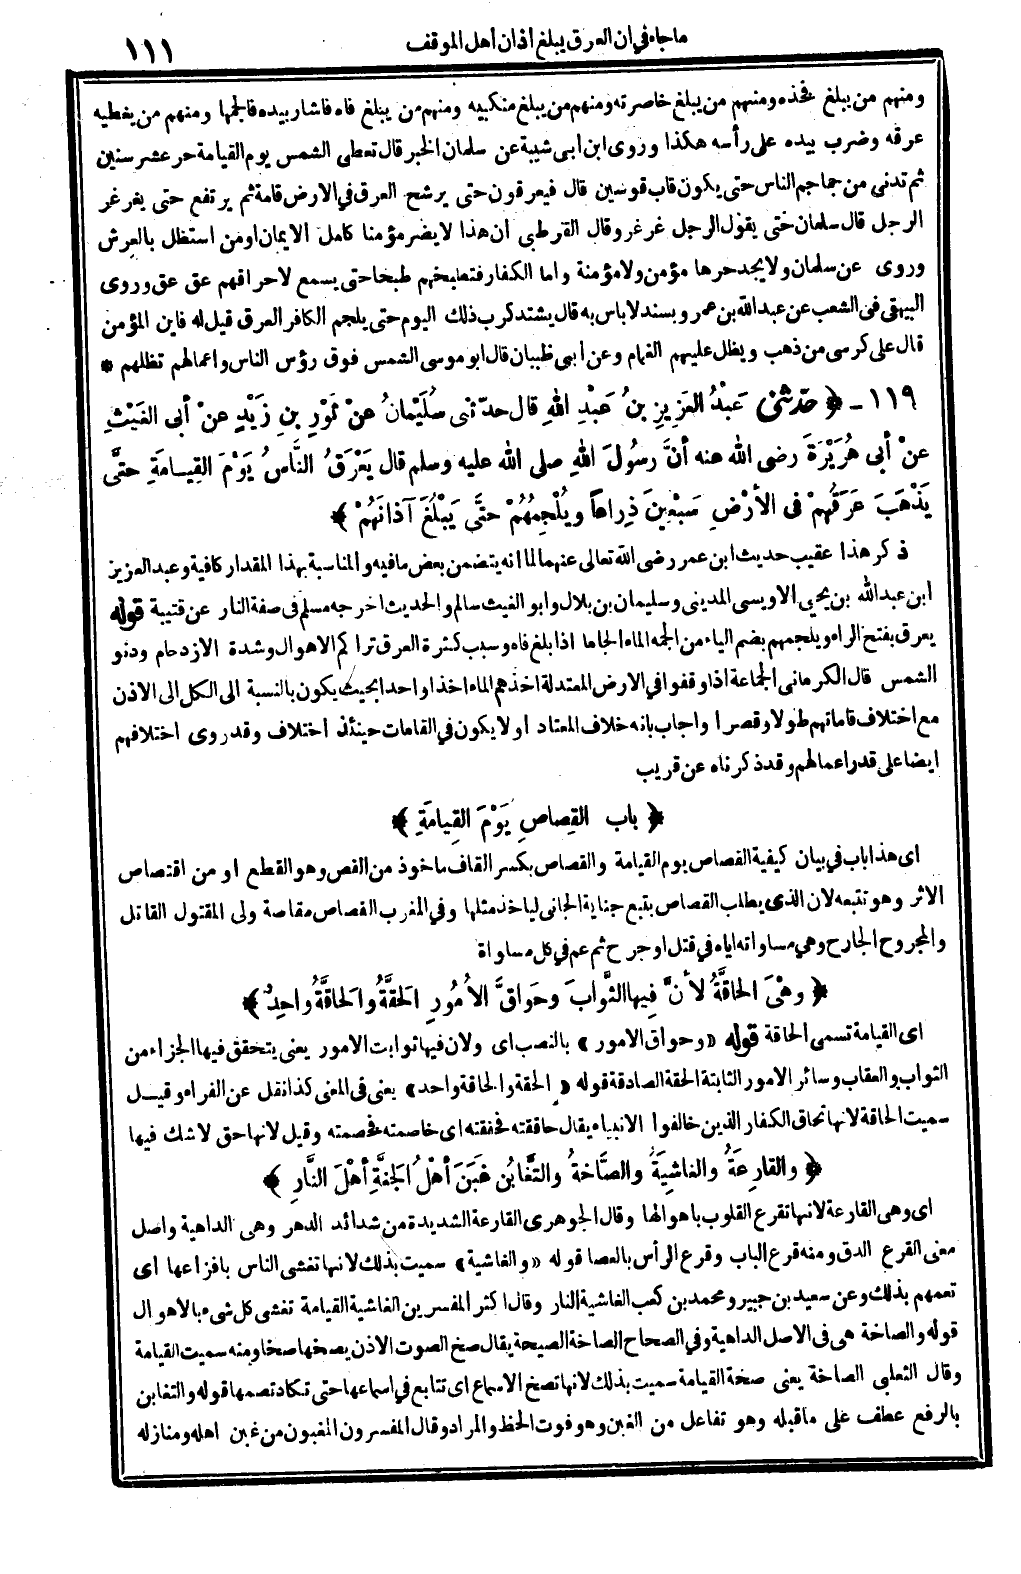 ماجاء في ان العرق يبلغ أذان أهل الموقف ١١١
ومنهم من يبلغ فخذه ومنهم من يبلغ خاصرته ومنهم من يبلغ منكبيه ومنهم من يبلغ فاه فاشار بيده فالجمها ومنهم من يغطيه
عرقه وضرب بيده على رأسه هكذا وروى ابن ابى شيبة عن سلمان الخبر قال تعطى الشمس يوم القيامة حر عشر سنين
ثم تدنى من جماجم الناس حتى يكون قاب قوسين قال فيعرقون حتى يرشح العرق في الارض قامة ثم يرتفع حتى يغرغر
الرجل قال سلمان حتى يقول الرجل غرغر وقال القرطبى أن هذا لا يضر مؤمنا كامل الايمان او من استظل بالعرش
وروى عن سلمان ولا يجد حرها مؤمن ولا مؤمنة واما الكفار فتطبخهم طبخا حتى يسمع لاحراقهم عق عق وروى
البيهقى فى الشعب عن عبد الله بن عمرو بسند لا باس به قال يشتد كرب ذلك اليوم حتى يلجم الكافر العرق قيل له فاين المؤمن
قال على كرسى من ذهب ويظلل عليهم الغمام وعن ابى ظبيان قال ابو موسى الشمس فوق رؤس الناس واعمالهم تظلهم *
١١٩ - ﴿ حدّثنى عَبْدُ العَزِيزِ بنُ عَبدِ اللهِ قال حدّثنى سُلَيْمانُ عنْ ثَوْرِ بنِ زَيْدٍ عنْ أبى الغَيْثِ
عنْ أبى هُرَيْرَةَ رضى الله عنه أنَّ رسُولَ اللهِ صلى الله عليه وسلم قال يَعْرَقُ النَّاسُ يَوْمَ القِيامَةِ حتَّى
يَذْهَبَ عَرَقُهُمْ فى الأرْضِ سَبْعِينَ ذِراعًا ويُلْجِمُهُمْ حتَّى يَبْلُغَ آذانَهُمْ ﴾
ذكر هذا عقيب حديث ابن عمر رضى الله تعالى عنهما لما انه يتضمن بعض ما فيه والمناسبة بهذا المقدار كافية وعبد العزيز
ابن عبد الله بن يحيى الاويسى المدينى وسليمان بن بلال وابو الغيث سالم والحديث اخرجه مسلم فى صفة النار عن قتيبة قوله
يعرق بفتح الراء ويلجمهم بضم الياء من الجمه الماء الجاما اذا بلغ فاه وسبب كثرة العرق تراكم الاهوال وشدة الازدحام ودنو
الشمس قال الكرمانى الجماعة اذا وقفوا في الارض المعتدلة اخذهم الماء اخذا واحدا بحيث يكون بالنسبة الى الكل الى الاذن
مع اختلاف قاماتهم طولا وقصرا واجاب بانه خلاف المعتاد او لا يكون في القامات حينئذ اختلاف وقد روى اختلافهم
ايضا على قدر اعمالهم وقد ذكرناه عن قريب
﴿ باب القِصاصِ يَوْمَ القِيامَةِ ﴾
اى هذا باب في بيان كيفية القصاص يوم القيامة والقصاص بكسر القاف ماخوذ من القص وهو القطع او من اقتصاص
الاثر وهو تتبعه لان الذى يطلب القصاص يتبع جناية الجانى لياخذ مثلها وفي المغرب القصاص مقاصة ولى المقتول القاتل
والمجروح الجارح وهى مساواته اياه في قتل او جرح ثم عم في كل مساواة
﴿ وهْىَ الحاقَّةُ لأنَّ فِيها الثَّوابَ وحَواقَّ الأُمُورِ الحَقَّةُ والحاقَّةُ واحِدٌ ﴾
اى القيامة تسمى الحاقة قوله «وحواق الامور» بالنصب اى ولان فيها ثوابت الامور يعنى يتحقق فيها الجزاء من
الثواب والعقاب وسائر الامور الثابتة الحقة الصادقة قوله «الحقة والحاقة واحد» يعنى فى المعنى كذا نقل عن الفراء وقيل
سميت الحاقة لانها تحاق الكفار الذين خالفوا الانبياء يقال حاققته فحققته اى خاصمته فخصمته وقيل لانها حق لا شك فيها
﴿ والقارِعَةُ والغاشِيَةُ والصَّاخَّةُ والتَّغابُنُ غَبَنَ أهْلُ الجَنَّةِ أهْلَ النَّارِ ﴾
اى وهى القارعة لانها تقرع القلوب باهوالها وقال الجوهرى القارعة الشديدة من شدائد الدهر وهى الداهية واصل
معنى القرع الدق ومنه قرع الباب وقرع الرأس بالعصا قوله «والغاشية» سميت بذلك لانها تغشى الناس بافزاعها اى
تعمهم بذلك وعن سعيد بن جبير ومحمد بن كعب الغاشية النار وقال اكثر المفسرين الغاشية القيامة تغشى كل شىء بالاهوال
قوله والصاخة هى فى الاصل الداهية وفي الصحاح الصاخة الصيحة يقال صخ الصوت الاذن يصخها صخا ومنه سميت القيامة
وقال الثعلبى الصاخة يعنى صخة القيامة سميت بذلك لانها تصخ الاسماع اى تتابع في اسماعها حتى تكاد تصمها قوله والتغابن
بالرفع عطف على ما قبله وهو تفاعل من الغبن وهو فوت الحظ والمراد وقال المفسرون المغبون من غبن اهله ومنازله